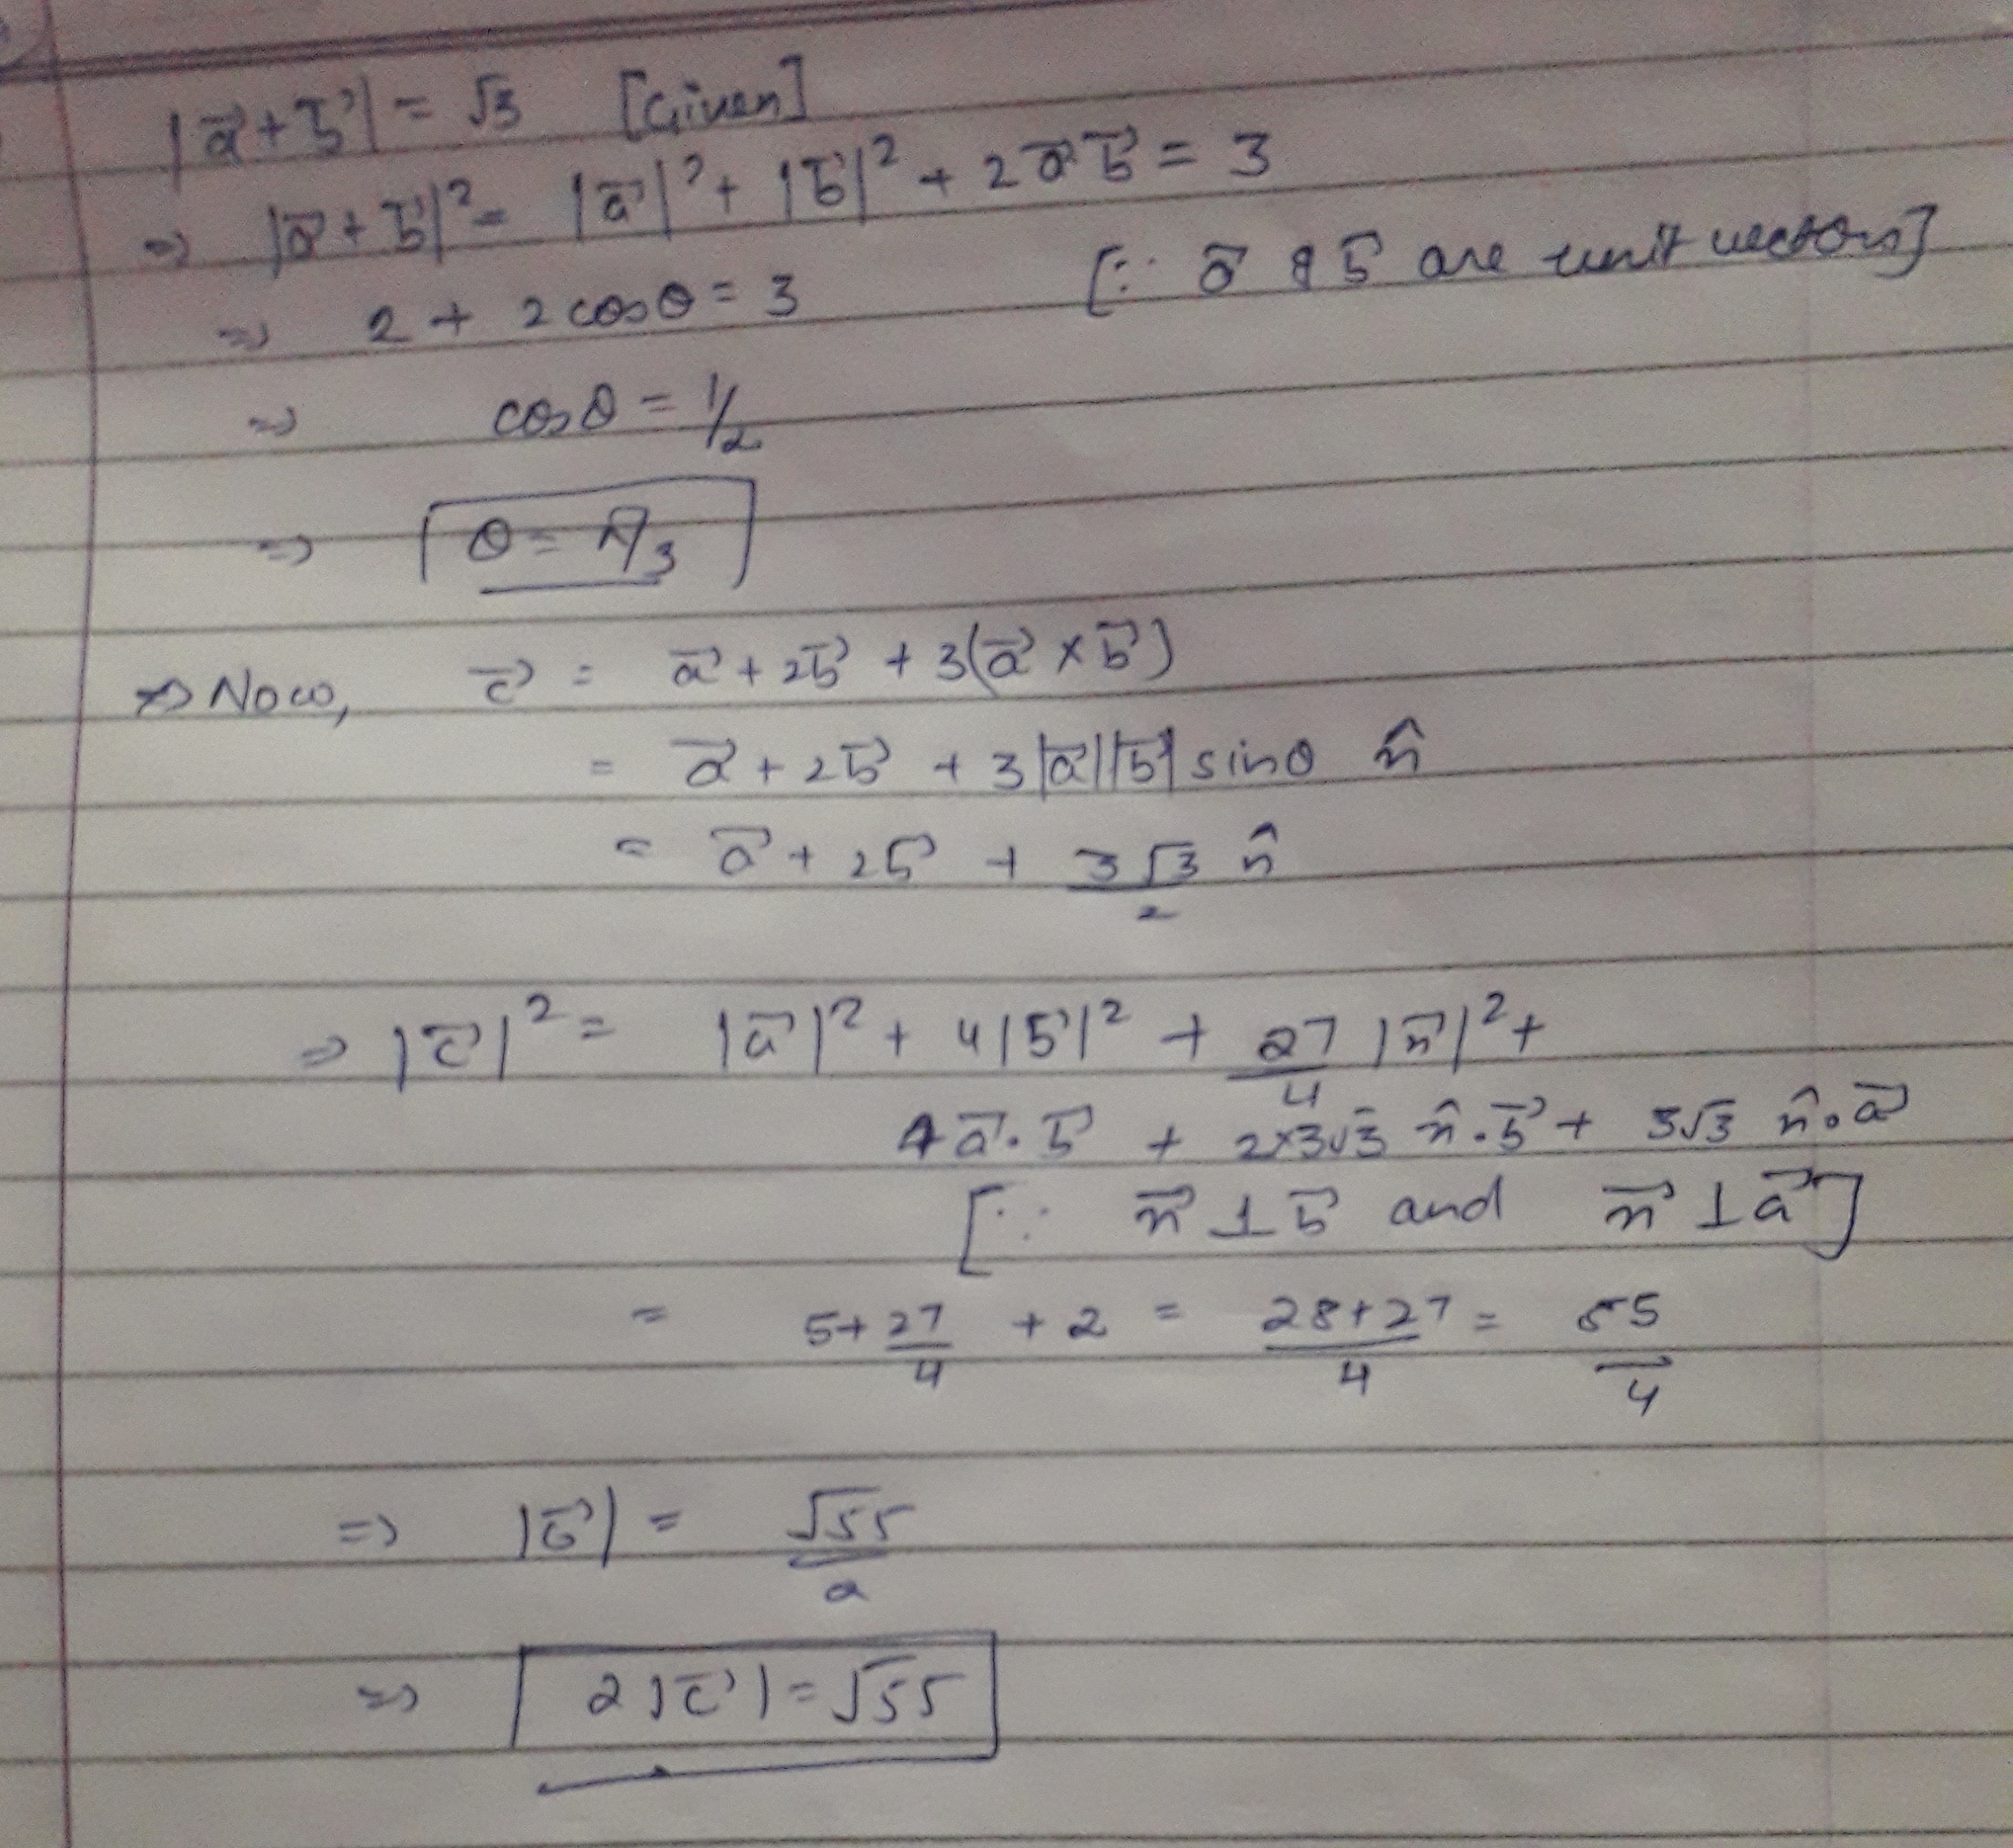 |a⃗ + b⃗| = √3 [Given]
⇒ |a⃗ + b⃗|² = |a⃗|² + |b⃗|² + 2a⃗ b⃗ = 3
⇒ 2 + 2 cosθ = 3 [∵ a⃗ & b⃗ are unit vectors]
⇒ cosθ = 1/2
⇒ θ = π/3
⇒ Now, c⃗ = a⃗ + 2b⃗ + 3(a⃗ × b⃗)
= a⃗ + 2b⃗ + 3|a⃗||b⃗| sinθ n̂
= a⃗ + 2b⃗ + 3√3/2 n̂
⇒ |c⃗|² = |a⃗|² + 4|b⃗|² + 27/4 |n⃗|² +
4a⃗.b⃗ + 2×3√3 n̂.b⃗ + 3√3 n̂.a⃗
[∵ n⃗ ⊥ b⃗ and n⃗ ⊥ a⃗]
= 5 + 27/4 + 2 = 28+27/4 = 55/4
⇒ |c⃗| = √55/2
⇒ 2|c⃗| = √55